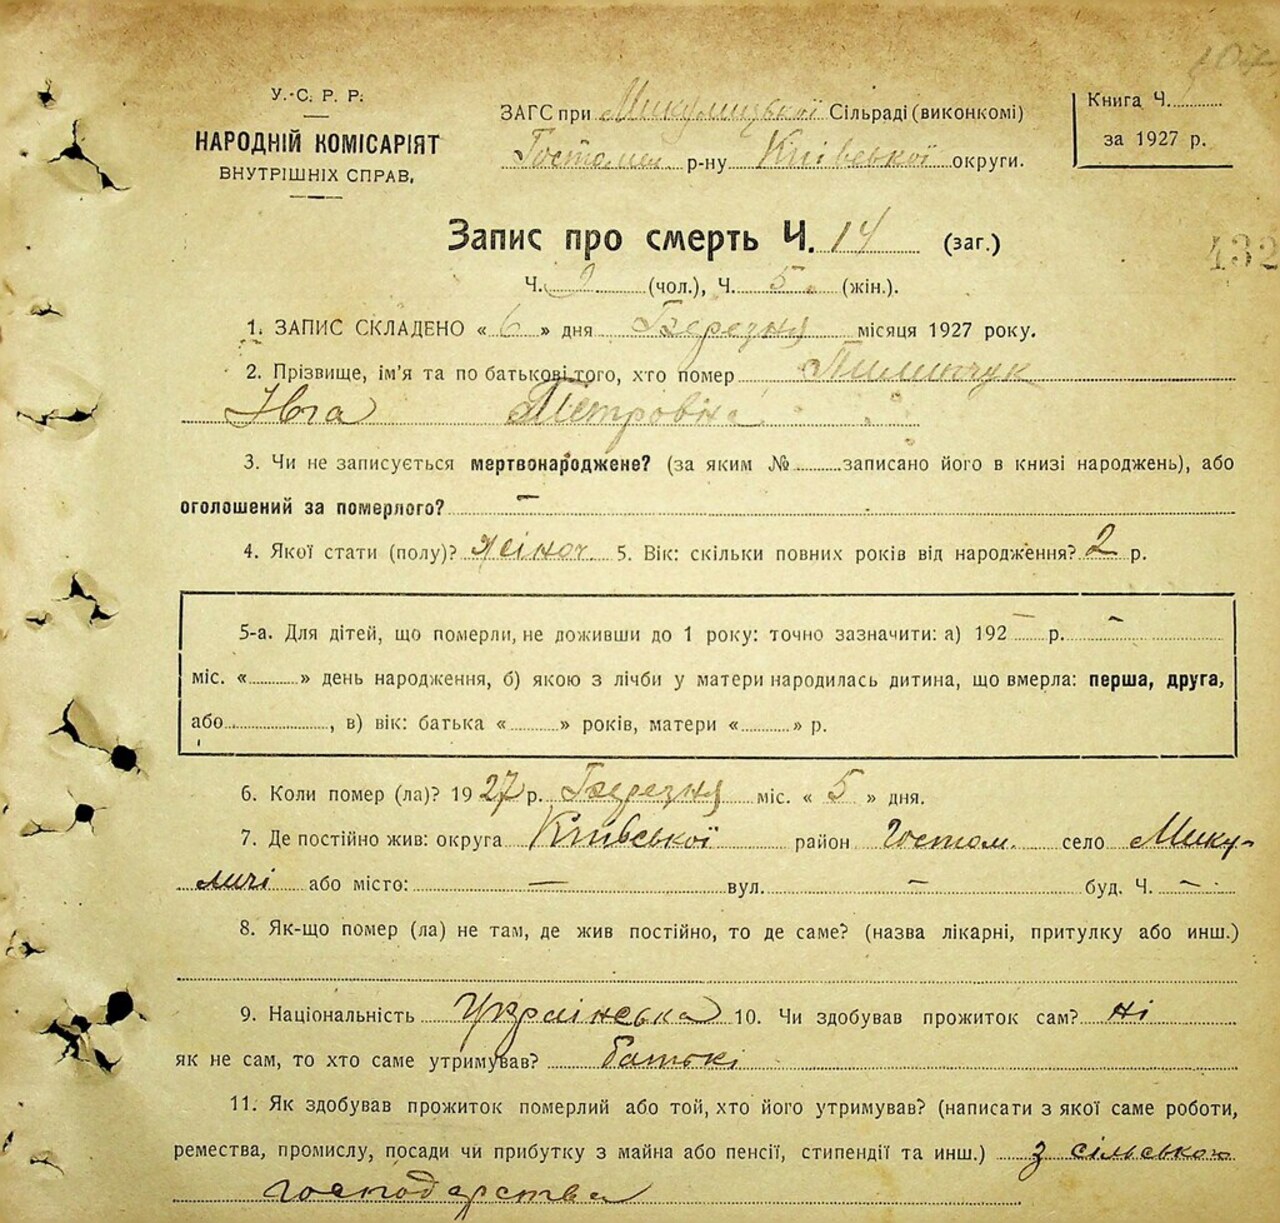 107
У.-С. Р. Р.
НАРОДНІЙ КОМІСАРІЯТ
ВНУТРІШНІХ СПРАВ,
ЗАГС при Микулицької Сільраді (виконкомі)
Гостомел р-ну Київської округи.
Книга Ч.
за 1927 р.
Запис про смерть Ч. 14 (заг.)
432
Ч. 9 (чол.), Ч. 5 (жін.).
1. ЗАПИС СКЛАДЕНО « 6 » дня Березня місяця 1927 року.
2. Прізвище, ім'я та по батькові того, хто помер Пилипчук
Ївга Петровна
3. Чи не записується мертвонароджене? (за яким № записано його в книзі народжень), або
оголошений за померлого? —
4. Якої стати (полу)? жіноч. 5. Вік: скільки повних років від народження? 2 р.
5-а. Для дітей, що померли, не доживши до 1 року: точно зазначити: а) 192 — р. —
міс. « » день народження, б) якою з лічби у матери народилась дитина, що вмерла: перша, друга,
або , в) вік: батька « » років, матери « » р.
6. Коли помер (ла)? 1927 р. Березня міс. « 5 » дня.
7. Де постійно жив: округа Київської район Гостом. село Мику-
личі або місто: — вул. — буд. Ч. —
8. Як-що помер (ла) не там, де жив постійно, то де саме? (назва лікарні, притулку або инш.)
9. Національність Українська 10. Чи здобував прожиток сам? ні
як не сам, то хто саме утримував? батькі
11. Як здобував прожиток померлий або той, хто його утримував? (написати з якої саме роботи,
ремества, промислу, посади чи прибутку з майна або пенсії, стипендії та инш.) з сільського
господарства